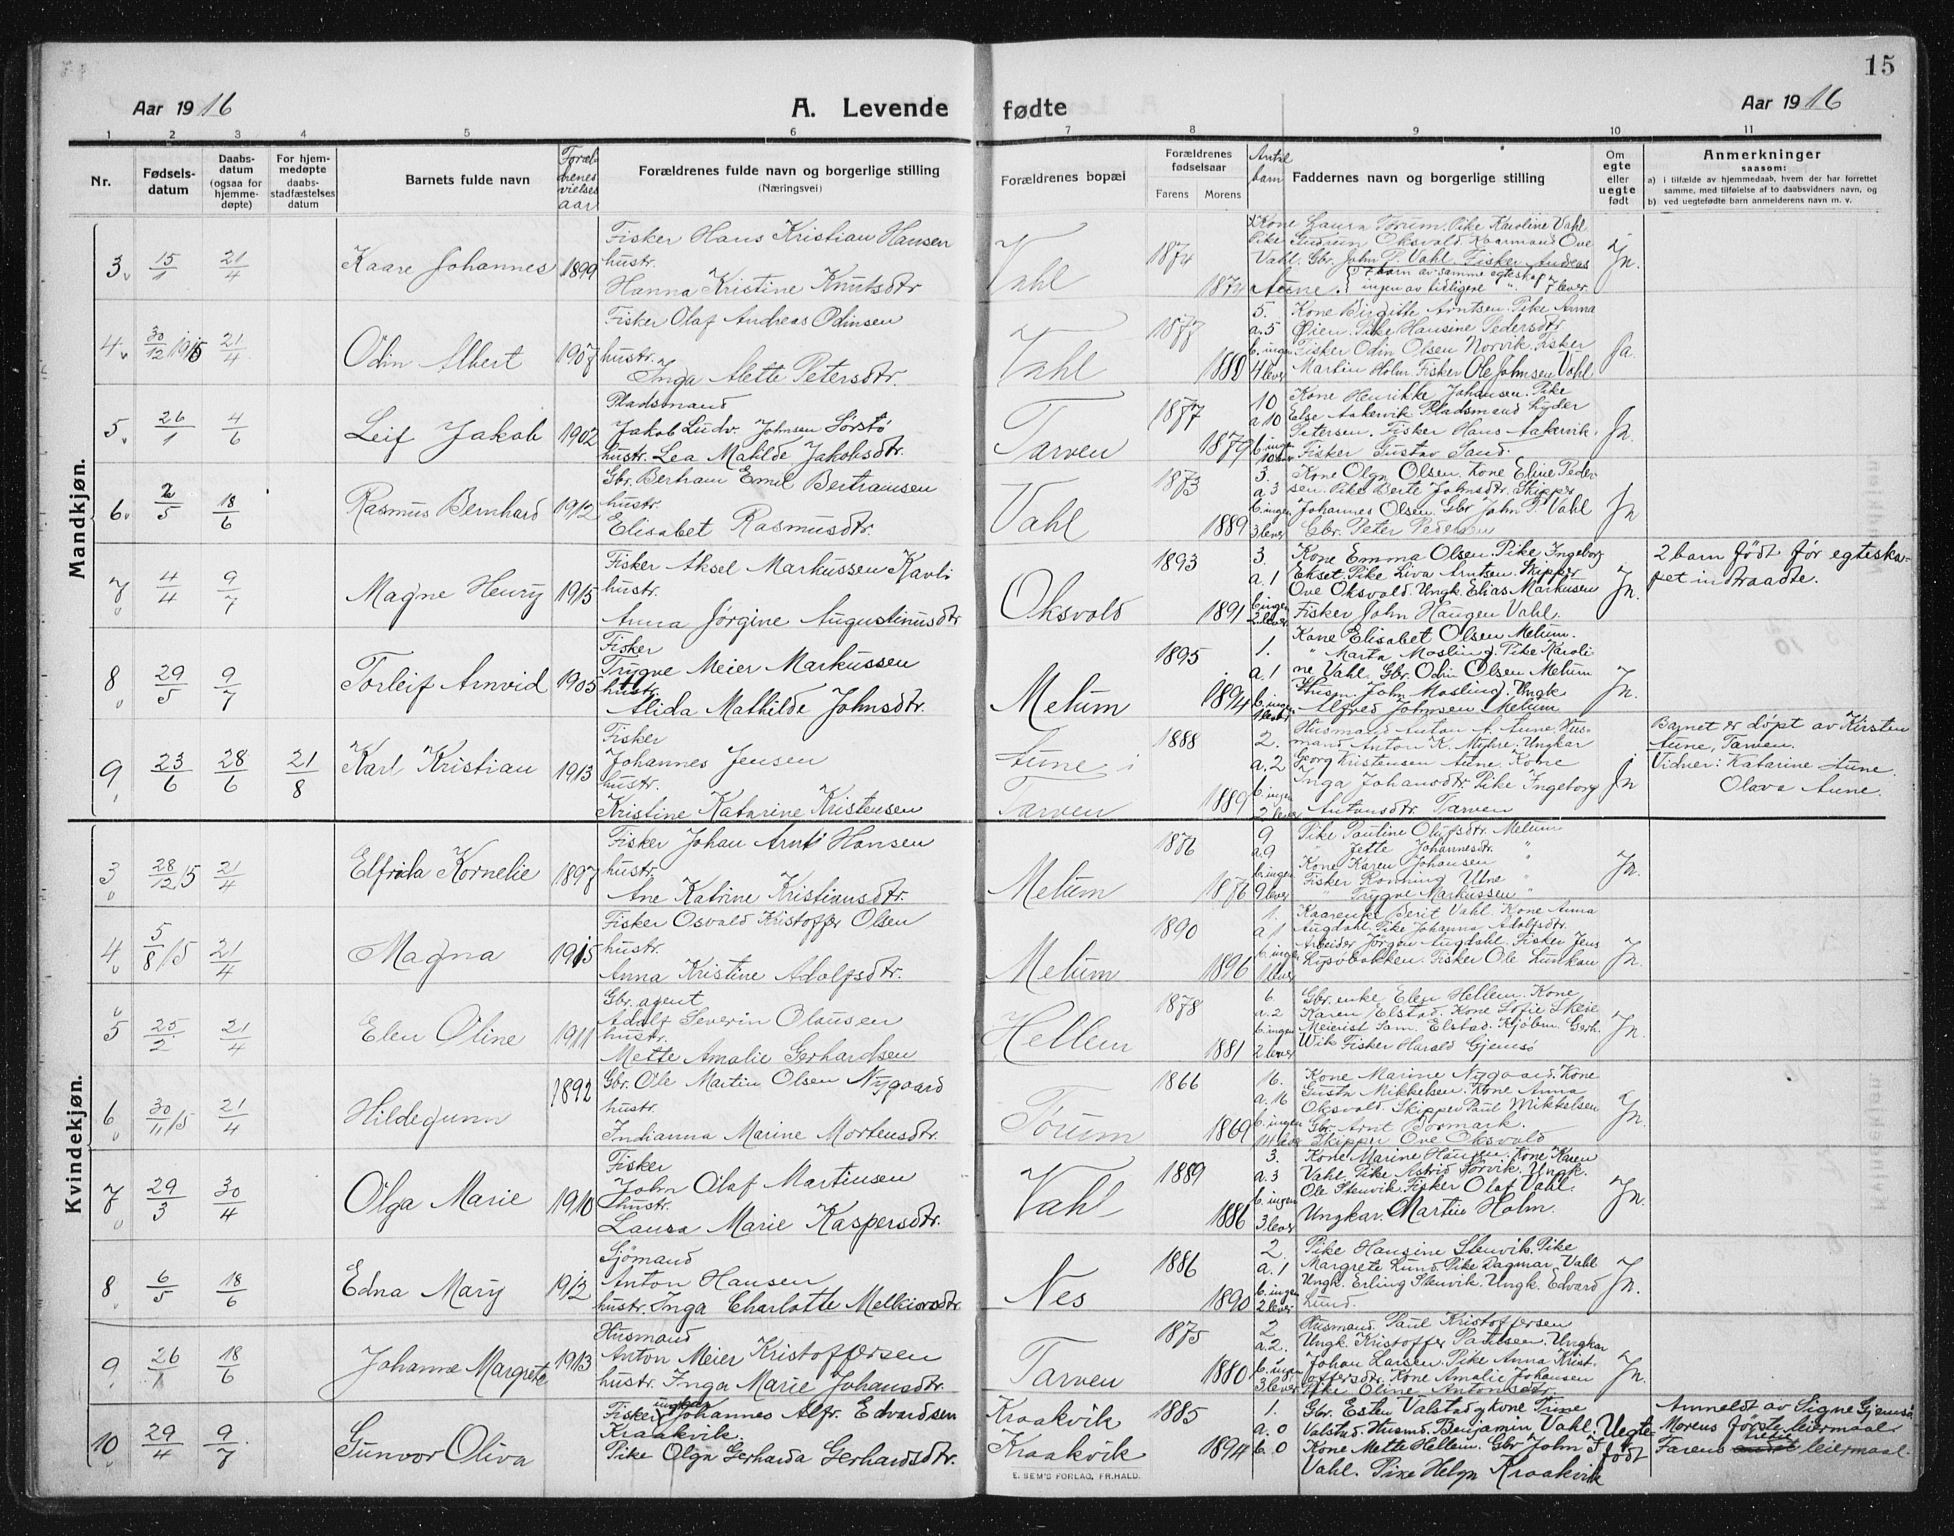 15
Aar 1916 A. Levende fødte Aar 1916
1 2 3 4 5 6 7 8 9 10 11
Nr. Fødselsdatum Daabsdatum (ogsaa for hjemmedøpte) For hjemmedøpte daabsstadfæstelses datum Barnets fulde navn Foræl- drenes vielses aar Forældrenes fulde navn og borgerlige stilling (Næringsvei) Forældrenes bopæl Forældrenes fødselsaar Farens Morens Antal barn Faddernes navn og borgerlige stilling Om egte eller uegte født Anmerkninger saasom:
a) i tilfælde av hjemmedaab, hvem der har forrettet samme, med tilføielse af to daabsvidners navn, og
b) ved uegtefødte barn anmelderens navn m. v.
Mandkjøn.
3 15/1 21/4 Kaare Johannes 1899 Fisker Hans Kristian Hansen
hustr.
Hanna Kristine Knutsdtr
Vahl 1874 1874
Kone Laura Torum. Pike Karoline Vahl
Pike Gudrun Oksvold. Kaarmand Ove
Vahl. Gbr. John P. Vahl. Fisker Andreas
Aune. 7 barn av samme egteskap
ingen av tidligere " 7 lever
Ja.
4 30/12 1915 21/4 Odin Albert 1907 Fisker Olaf Andreas Odinsen
hustr.
Inga Alette Petersdtr.
Vahl 1877 1888
5. a. 5 b. ingen 4 lever
Kone Birgitte Arntsen. Pike Anna
Øien. Pike Hansine Pedersdtr
Fisker Odin Olsen Norvik. Fisker
Martin Holm. Fisker Ole Johnsen Vahl
Ja.
5 26/1 4/6 Leif Jakob 1902 Pladsmand
Jakob Ludv. Johnsen Sørstø
hustr. Lea Matilde Jakobsdtr.
Tarven 1877 1879
10 a 10 b. ingen
Kone Henrikke Johansen. Pike
Else Aakervik. Pladsmand Lyder
Petersen. Fisker Hans Aakervik.
Fisker Gustav Sand.
Ja.
6 2/5 18/6 Rasmus Bernhard 1912 Gbr. Bertram Emil Bertramsen
hustr.
Elisabet Rasmusdtr.
Vahl 1873 1889
3. a 3 b. ingen 3 lever
Kone Olga Olsen. Kone Eline Peder-
sen. Pike Berte Johnsdtr. Skipper
Johannes Olsen. Gbr John P. Vahl
Gbr. Peter Pedersen
Ja
7 4/4 9/7 Magne Henry 1915 Fisker Aksel Markussen Kavli
hustr.
Anna Jørgine Augustinusdtr
Oksvold 1893 1891
3. a. 1 b. ingen 2 lever
Kone Emma Olsen. Pike Ingeborg
Ekset. Pike Liva Arntsen. Skipper
Ove Oksvold. Ungk. Elias Markusen
Fisker John Haugen Vahl.
Ja.
2 barn født før egteska-
pet indtraadte.
8 29/5 9/7 Torleif Arnvid 1905 Fisker
Trygve Meier Markussen
hustr.
Alida Mathilde Johnsdtr.
Metum 1895 1894
1. a. 1 b. ingen 1 lever
Kone Elisabet Olsen Metum.
" Marta Mosling. Pike Karoli
ne Vahl. Gbr. Odin Olsen Metum
Husm. John Mosling. Ungk
Alfred Johnsen Metum
Ja.
9 23/6 28/6 21/8 Karl Kristian 1913 Fisker
Johannes Jensen
hustr.
Kristine Katarine Kristensen
Aune i
Tarven 1888 1889
2. a. 2 b. ingen 2 lever
Husmand Anton A. Aune. Hus-
mand Anton K. Myhre. Ungkar
Georg Kristensen Aune. Kone
Inga Johansdtr. Pike Ingeborg
Antonsdtr. Tarven
Ja
Barnet er døpt av Kirsten
Aune, Tarven.
Vidner: Katarine Aune.
Olava Aune.
Kvindekjøn.
3 28/12 15 21/4 Elfrida Kornelie 1897 Fisker Johan Arnt Hansen
hustr.
Ane Katrine Kristiansdtr.
Metum 1876 1876
9 a. 9 b. ingen 9 lever
Pike Pauline Olufsdtr. Metum
" Jette Johannesdtr. "
Kone Karen Johansen "
Fisker Rovning Utne "
" Trygve Markussen "
Ja.
4 5/8 15 21/4 Magna 1915 Fisker Osvald Kristoffer Olsen
hustr.
Anna Kristine Adolfsdtr.
Metum 1890 1896
1. a 1 b. ingen 1 lever
Kaarenke Berit Vahl. Kone Anna
Augdahl. Pike Johanna Adolfsdtr.
Arbeider Jørgen Augdahl. Fisker Jens
Lysobakken. Fisker Ole Lunkan
Ja.
5 25/2 21/4 Elen Oline 1911 Gbr. agent
Adolf Severin Olausen
hustr.
Mette Amalie Gerhardsen
Hellem 1878 1881
6. a. 2 b. ingen 2 lever
Gbr. enke Elen Hellem. Kone
Karen Elstad. Kone Sofie Skeie
Meierist Sam. Elstad. Kjøbm. Gerh.
Wik Fisker Harald Gjemsø
Ja.
6 30/11 15 21/4 Hildegunn 1892 Gbr. Ole Martin Olsen Nygaard
hustr.
Indianna Marine Mortensdtr.
Torum 1866 1869
16. a. 16 b. ingen
Kone Marine Nygaard. Kone
Gusta Mikkelsen. Kone Anna
Oksvold. Skipper Paul Mikkelsen
Gbr. Arnt Bormark.
Skipper Ove Oksvold
Ja.
7 29/3 30/4 Olga Marie 1910 Fisker
John Olaf Martinsen
hustr.
Laura Marie Kaspersdtr.
Vahl 1889 1886
3. a. 3 b. ingen 3 lever
Kone Marine Hansen. Kone Karen
Vahl. Pike Astrid Sørvik. Ungk.
Ole Stenvik. Fisker Olaf Vahl.
Ungkar. Martin Holm.
Ja.
8 6/5 18/6 Edna Mary 1912 Sjømand
Anton Hansen
hustr. Inga Charlotte Melkiorsdtr.
Nes 1886 1890
2. a. 1 b. ingen 2 lever
Pike Hansine Stenvik. Pike
Margrete Lund. Pike Dagmar Vahl
Ungk. Erling Stenvik. Ungk. Edvard
Lund.
Ja.
9 26/1 18/6 Johanne Margrete 1913 Husmand
Anton Meier Kristoffersen
hustr. Inga Marie Johansdtr.
Tarven 1875 1880
2 a. 2. b. ingen 3 lever
Husmand Paul Kristoffersen
Ungk. Kristoffer Paulsen. Ungkar
Johan Larsen. Pike Anna Krist-
offersdtr. Kone Amalie Johansen
Pike Oline Antonsdtr.
Ja.
10 29/4 9/7 Gunvor Oliva Fisker ungkar Johannes Alfr. Edvardsen
Kraakvik.
Pike Olga Gerharda Gerhardsdtr.
Kraakvik
Kraakvik 1885 1894
1. a. 0 b. 0
Gbr. Esten Valstad og kone Trine
Valstad. Husmd. Benjamin Vahl.
Kone Mette Hellem. Gbr John P
Vahl. Pike Helga Kraakvik
Uegte
født
Anmeldt av Signe Gjemsø
Morens første leiermaal
Farens leiermaal.
E. SEM'S FORLAG, FR.HALD.